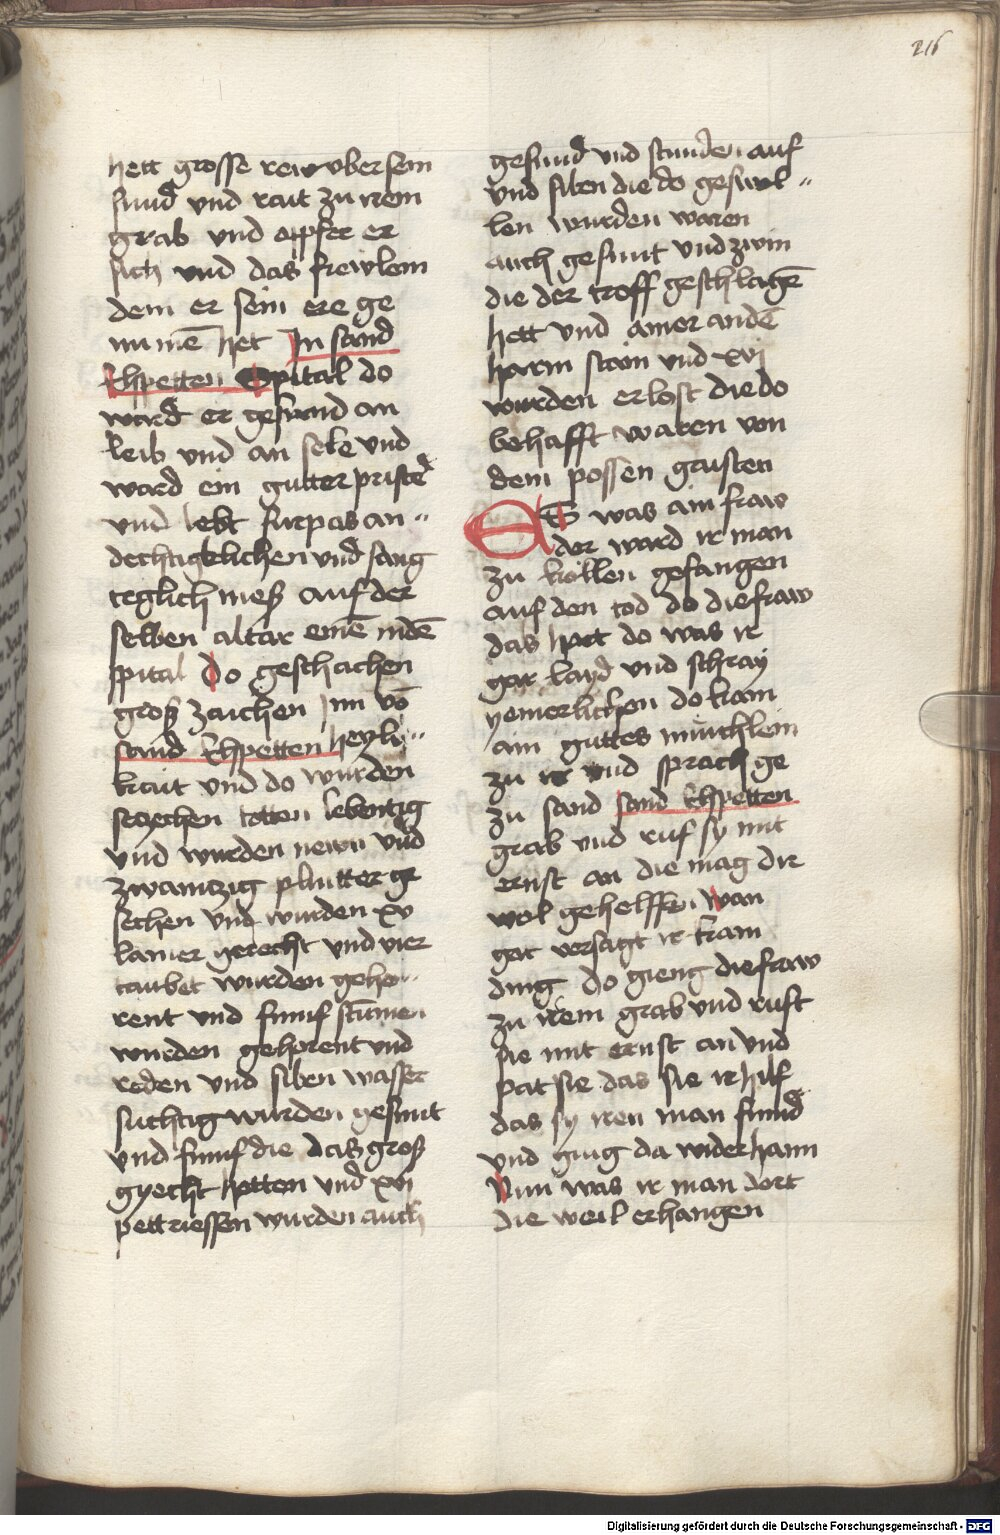 216
hett grosse rew vber sein
sund vnd rait zu irem
grab vnd opfert er
sich vnd das frewlein
dem er sein ere ge
numē het In sand
Elspetten Spital do
ward er gesund an
leib vnd an sele vnd
ward ein gutter priester
vnd lebt furpas an„
dechtigklichen vnd sang
teglich meß auf der
selben altar einē in dē
spital Do geschachen
groß zaichen Jnn vō
sand Elspetten heyli„
kait vnd do wurden
sechczehen totten lebentig
vnd wurden newn vnd
zwaintzig plintter ge
sechen vnd wurden xv
lamer gerecht vnd vier
taubet wurden geho„
rent vnd funf stumen
wurden gehorent vnd
reden vnd siben wasser
suchtig wurden gesunt
vnd funf die das groß
gyecht hetten vnd xvi
pettriessen wurden auch
gesund vnd stunden auf
vnd siben die do geswol„
len wurden waren
auch gesunt vnd zwin
die der troff geschlagē
hett vnd ainer andē
harm stain vnd xvi
wurden erlost die do
behafft waren von
dem possen gaisten
ES was ain fraw
der ward ir man
zu kollen gefangen
auf den tod do die fraw
das hort do was ir
gar layd vnd schray
yemerlichen do kam
ain guttes munchlein
zu ir vnd sprach ge
zu sand sand Elspetten
grab vnd ruf sy mit
ernst an die mag dir
wol gehelffen wan
got versagt ir kain
ding do gieng die fraw
zu irem grab vnd ruft
sie mit ernst an vnd
pat sie das sie ir hilf
das sy iren man fund
vnd ging da wider haim
Nun was ir man dort
die weil erhangen
Digitalisierung gefördert durch die Deutsche Forschungsgemeinschaft - DFG